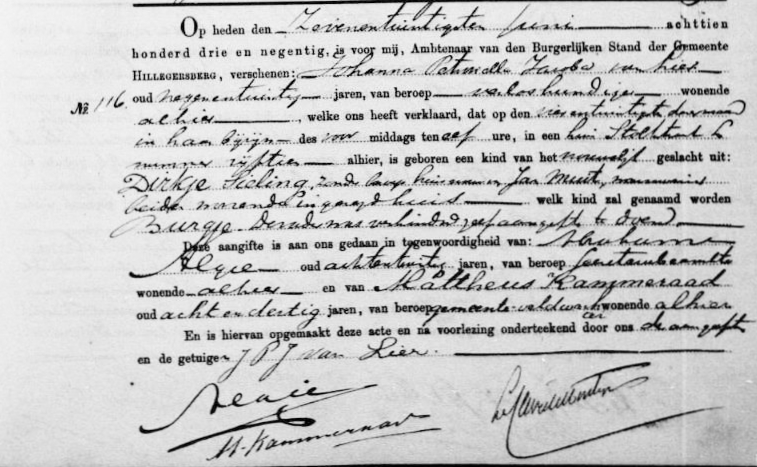 Op heden den Zevenentwintigsten Juni achttien
honderd drie en negentig, is voor mij, Ambtenaar van den Burgerlijken Stand der Gemeente
HILLEGERSBERG, verschenen: Johanna Petronella Jacoba van Lier
No 116. oud negenentwintig jaren, van beroep verloskundige wonende
alhier, welke ons heeft verklaard, dat op den vierentwintigste dezer maand
in haar bijzijn des voor middags ten elf ure, in een huis
nummer vijftien alhier, is geboren een kind van het geslacht uit:
Dirkje zonder beroep, huisvrouw van Jan
beide wonende in gezegd huis welk kind zal genaamd worden
Burgje. De vader was verhinderd zelf aangifte te doen.
Deze aangifte is aan ons gedaan in tegenwoordigheid van: Abraham
Algie oud achtentwintig jaren, van beroep Secretariebeambte
wonende alhier en van Mattheus Kammeraad
oud acht en dertig jaren, van beroep gemeente-veldwachter wonende alhier
En is hiervan opgemaakt deze acte en na voorlezing onderteekend door ons de aangeefster
en de getuigen J P J van Lier.
Algie
M. Kammeraad